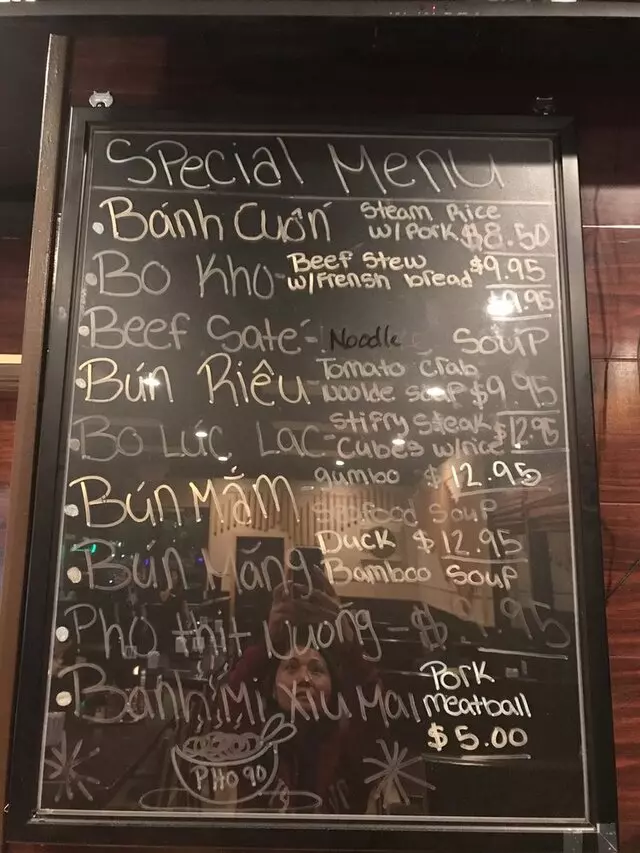 Special Menu
Bánh Cuốn Steam Rice
w/Pork $8.50
Bo Kho - Beef Stew $9.95
w/Frensh bread
9.95
Beef Saté - Noodle Soup
Bún Riêu - Tomato Crab
Noolde soup $9.95
Bo Lúc Lac - Stifry Steak
Cubes w/rice 12.95
Bún Mắm - gumbo $12.95
Seafood Soup
Bún Măng Duck $12.95
Bamboo Soup
Pho thit Nuong - $ .95
Bánh Mi Xiu Mai Pork
meatball
$5.00
PHO 90